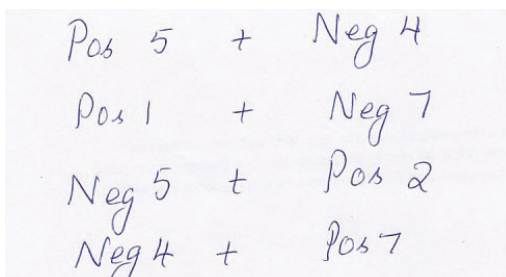 Pos 5 + Neg 4
Pos 1 + Neg 7
Neg 5 + Pos 2
Neg 4 + Pos 7